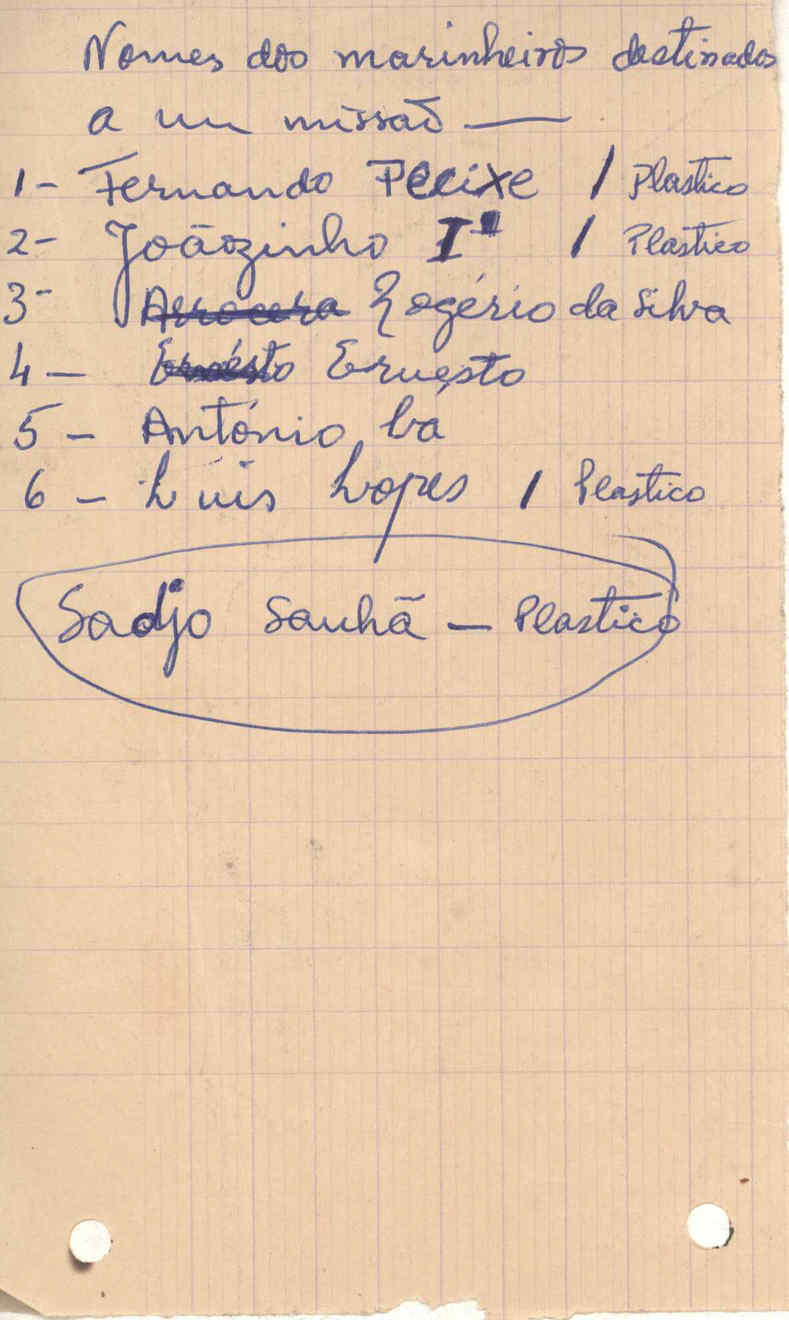 Nomes dos marinheiros destinados
a um missaõ —
1- Fernando Peeixe / Plastico
2- Joãozinho Iº / Plastico
3- Rogério da Silva
4 - Ernesto Ernesto
5 - António bá
6 - Luis Lopes / Plastico
Sadjo Sanhã - Plastico